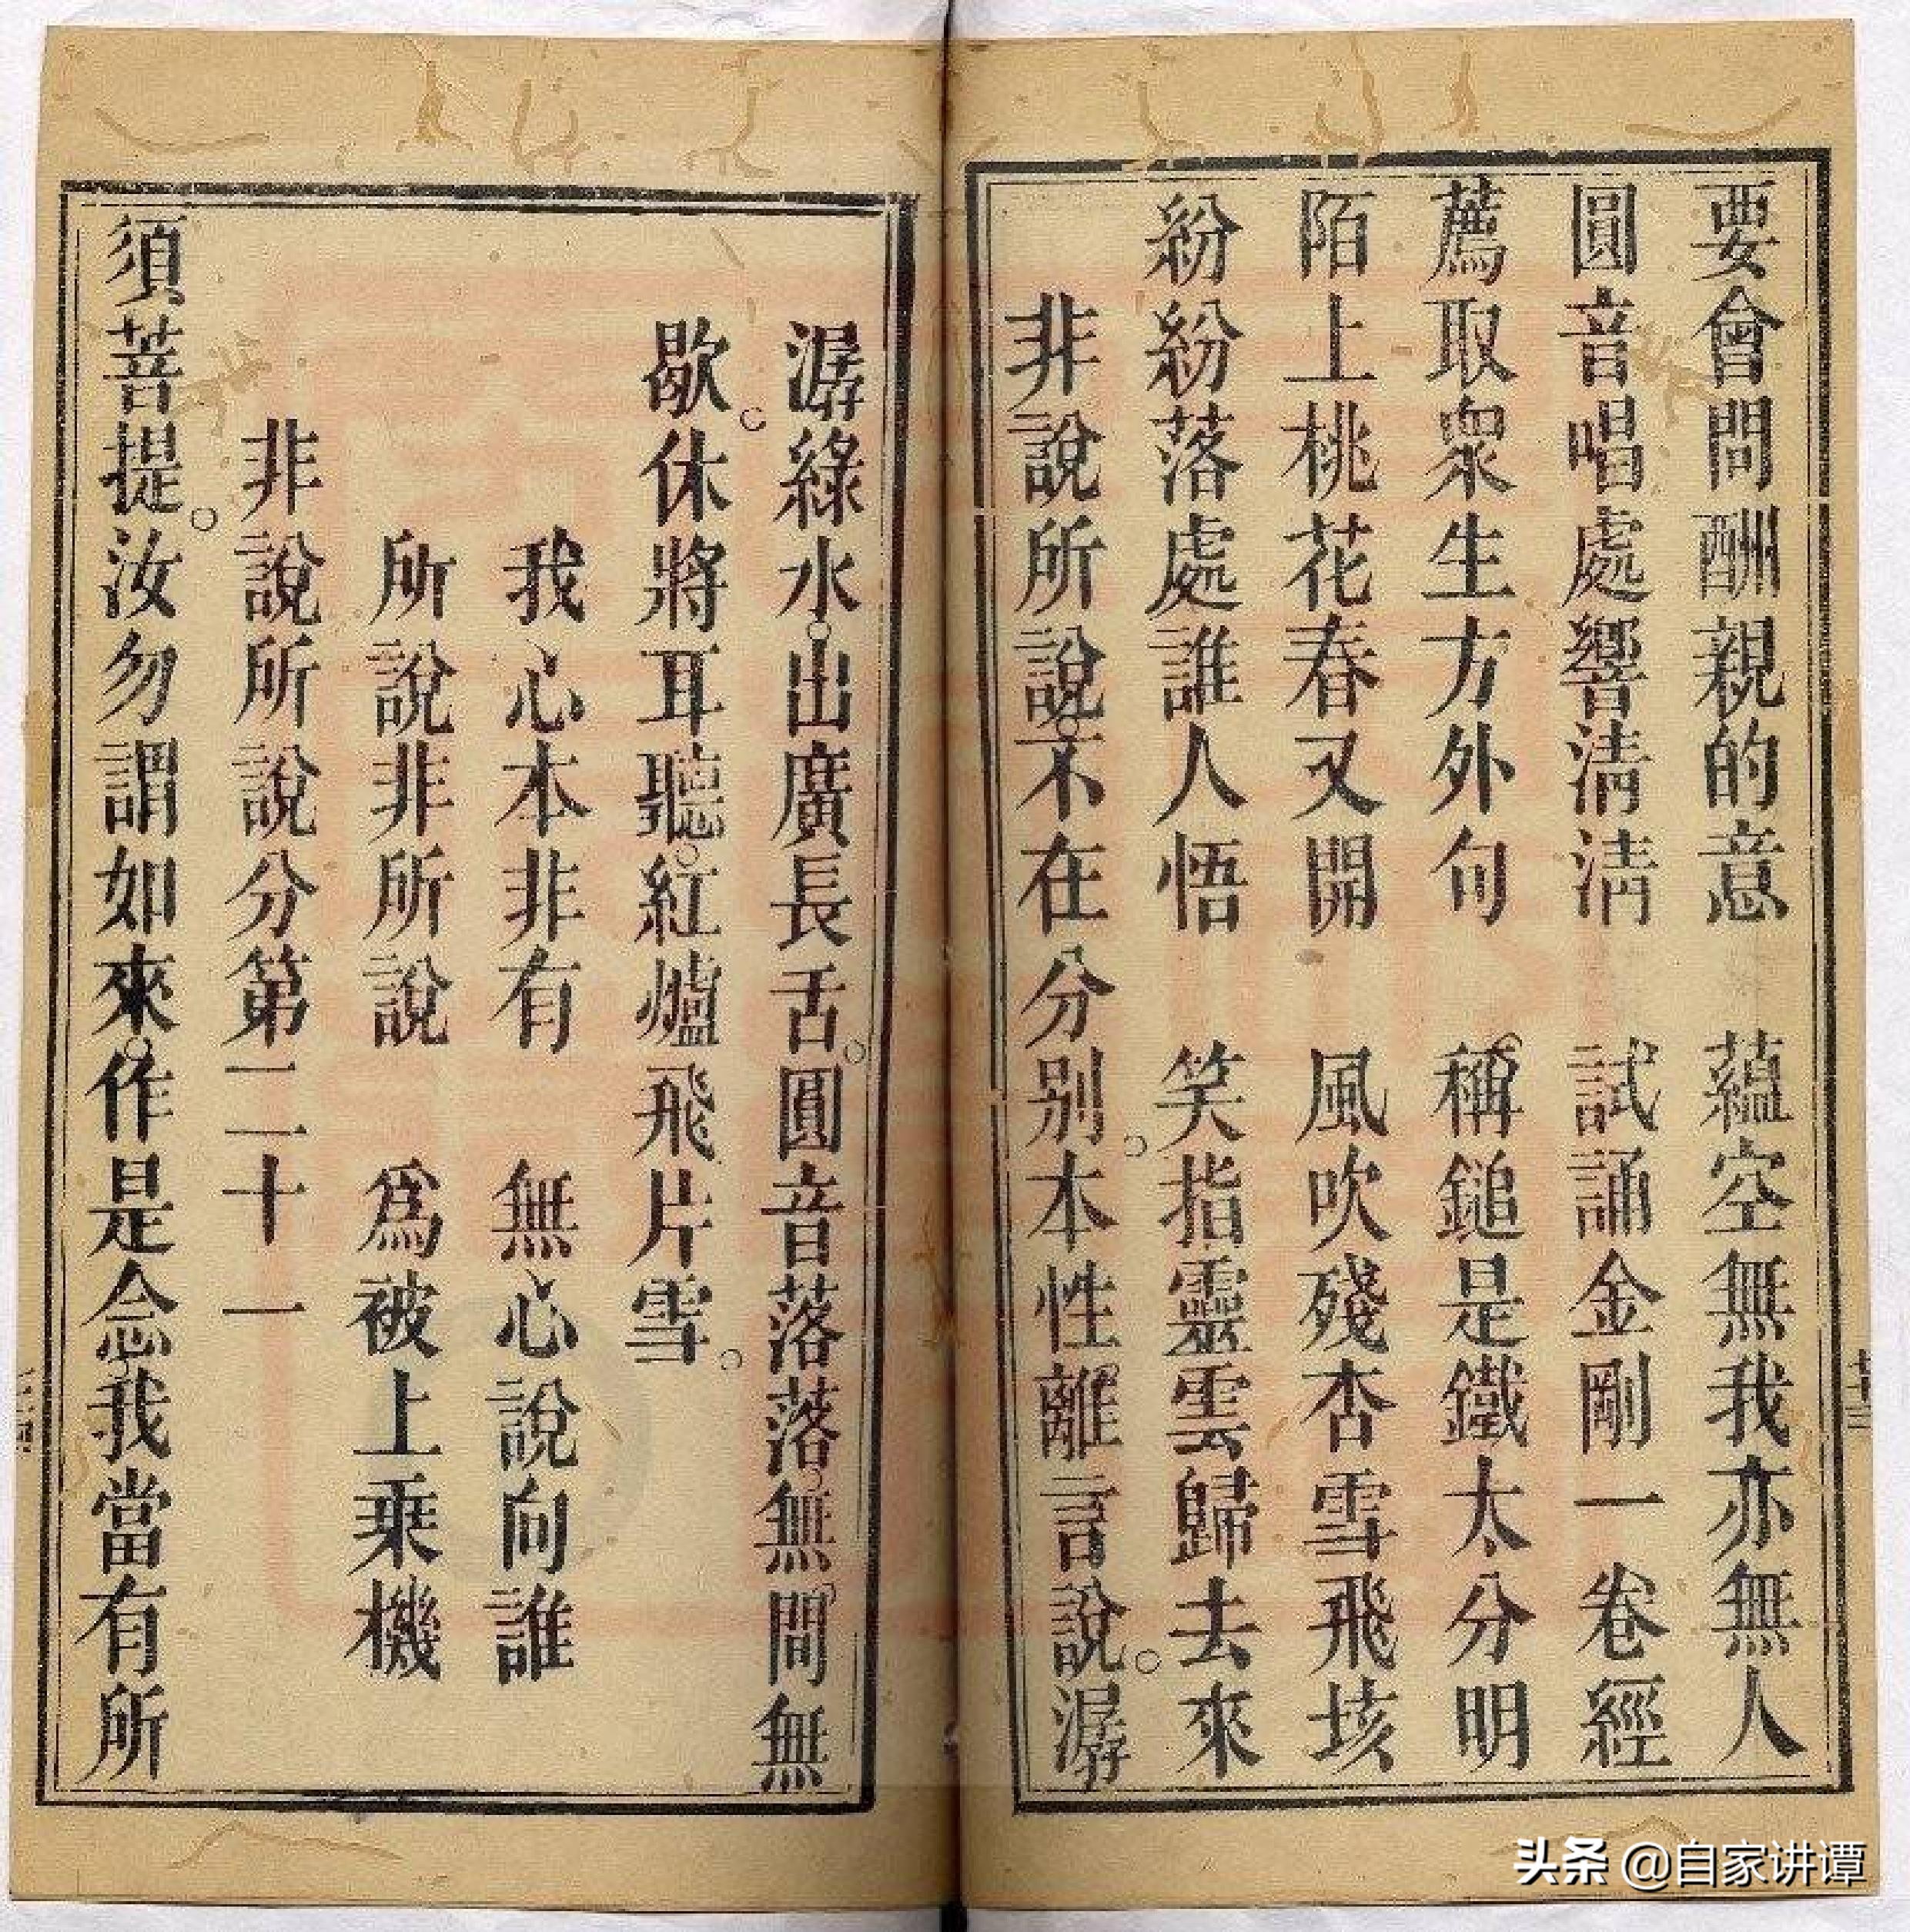 要會問酬親的意　蘊空無我亦無人
圓音唱處響清清　試誦金剛一卷經
薦取衆生方外句　稱鎚是鐵太分明
陌上桃花春又開　風吹殘杏雪飛垓
紛紛落處誰人悟　笑指靈雲歸去來
非說所說。不在分別。本性離言說。潺
潺綠水。出廣長舌。圓音落落。無間無
歇。休將耳聽。紅爐飛片雪。
我心本非有　無心說向誰
所說非所說　爲被上乘機
非說所說分第二十一
須菩提。汝勿謂如來。作是念。我當有所
頭条 @自家讲谭